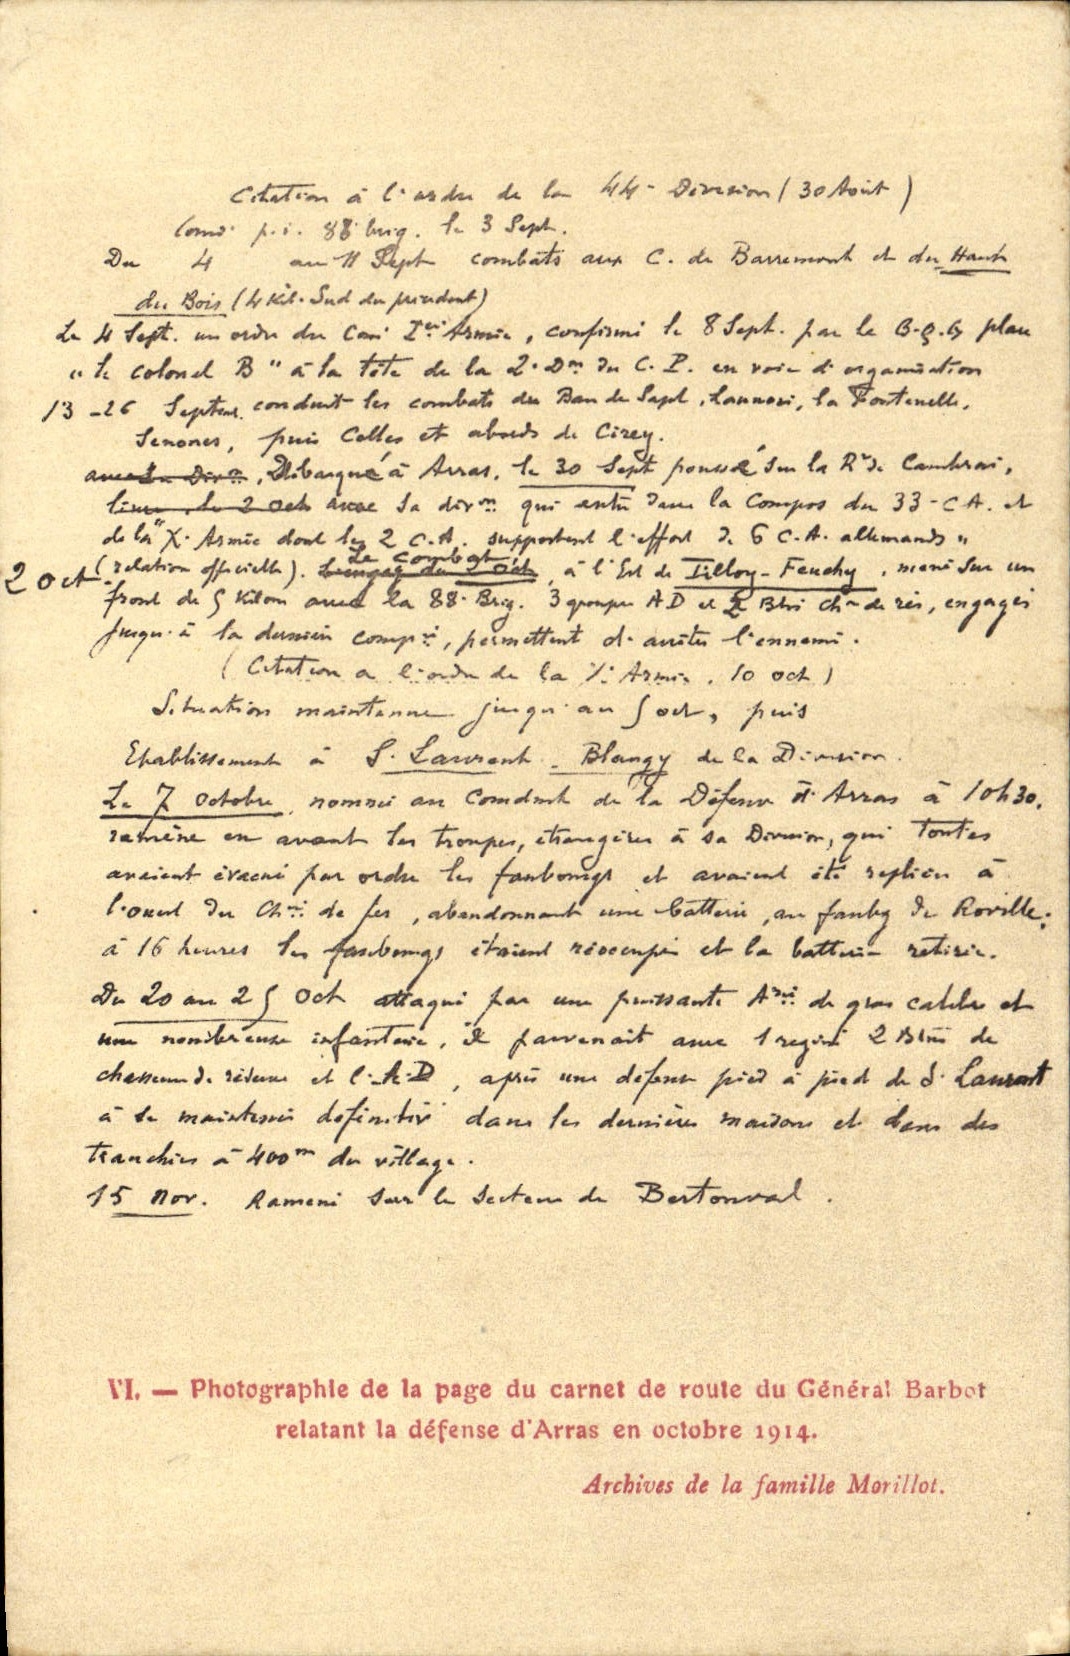 Citation à l'ordre de la 44e Division (30 Août)
Comdt p.i. 88e brig. le 3 Sept.
Du 4 au 11 Sept combats aux C. de Barremont et du Haut
du Bois (4 Kil. Sud du précédent)
Le 4 Sept. un ordre du Cant Iere Armée, confirmé le 8 Sept. par le G.Q.G place
"le colonel B" à la tête de la 2e Don du C. P. en voie d'organisation
13-26 Septem. conduit les combats du Ban de Sapt, Launois, la Fontenelle,
Senones, puis Celles et abords de Cirey.
avec la Divon, Débarqué à Arras, le 30 Sept poussé sur la Rte de Cambrai,
le 2 Oct avec sa divon qui entre dans la Compos du 33e C.A. et
de la "Xe Armée dont les 2 C.A. supportent l'effort de 6 C.A. allemands"
2 Oct (relation officielle). Le combat du 2 Oct, à l'Est de Tilloy-Feuchy, mené sur un
front de 5 Kilom avec la 88e Brig. 3 groupes AD et 2 Btns chrs de rés, engagés
jusqu'à la dernière compie, permettent d'arrêter l'ennemi.
(Citation à l'ordre de la Xe Armée. 10 oct)
Situation maintenue jusqu'au 5 oct, puis
Etablissement à St Laurent - Blangy de la Division.
Le 7 Octobre, nommé au Comdmt de la Défense d'Arras à 10h30.
ramène en avant les troupes, étrangères à sa Division, qui toutes
avaient évacué par ordre les faubourgs et avaient été repliées à
l'ouest du Chin de fer, abandonnant une batterie, au faubg de Roville;
à 16 heures les faubourgs étaient réoccupés et la batterie retirée.
Du 20 au 25 Oct attaqué par une puissante Arie de gros calibre et
une nombreuse infanterie, il parvenait avec 1 regint 2 Btns de
chasseurs de réserve et l'A.D, après une défense pied à pied de St Laurent
à se maintenir définitivt dans les dernières maisons et dans des
tranchées à 400m du village.
15 Nov. Ramené sur le Secteur de Bertonval.
VI. — Photographie de la page du carnet de route du Général Barbot
relatant la défense d'Arras en octobre 1914.
Archives de la famille Morillot.